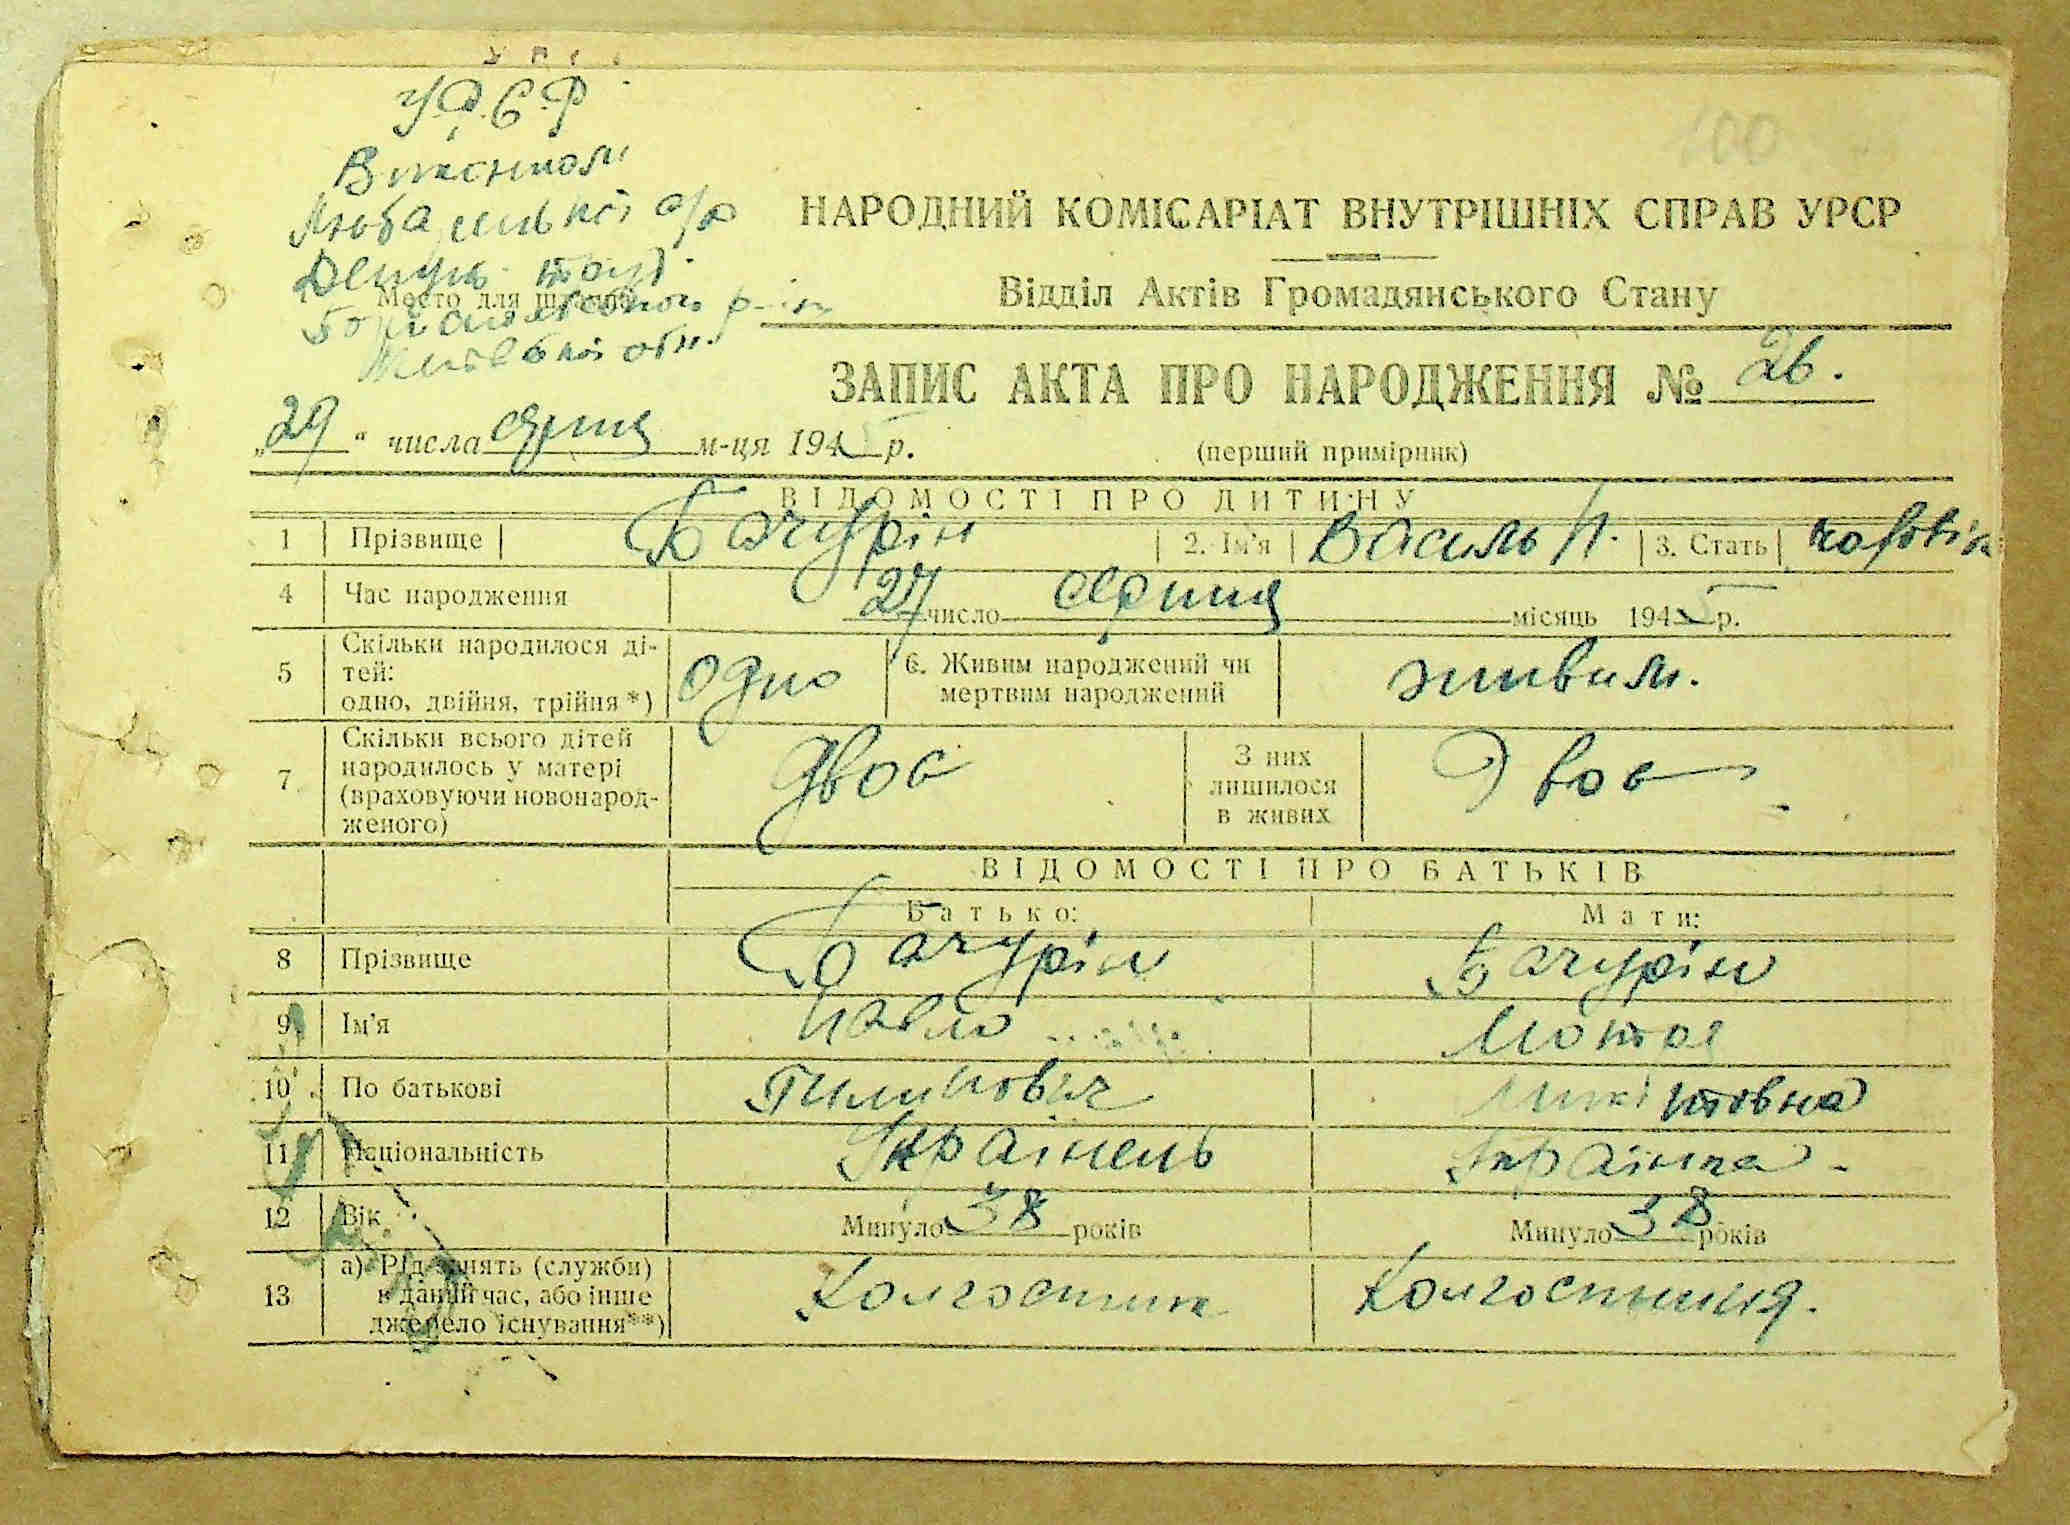 У.Р.С.Р
Виконком
Любарської с/р
Депут. труд.
Місто для штампа
р-ну
обл.
100
НАРОДНИЙ КОМІСАРІАТ ВНУТРІШНІХ СПРАВ УРСР
Відділ Актів Громадянського Стану
ЗАПИС АКТА ПРО НАРОДЖЕННЯ № 26.
„29“ числа серпня м-ця 1945 р.
(перший примірник)
ВІДОМОСТІ ПРО ДИТИНУ
1 Прізвище Бачурін 2. Ім'я Василь П. 3. Стать чоловік
4 Час народження 27 число серпня місяць 1945 р.
5 Скільки народилося ді-
тей:
одно, двійня, трійня*) одно 6. Живим народжений чи
мертвим народжений живим.
7 Скільки всього дітей
народилось у матері
(враховуючи новонарод-
женого) двоє З них
лишилося
в живих двоє
ВІДОМОСТІ ПРО БАТЬКІВ
Батько: Мати:
8 Прізвище Бачурін Бачурін
9 Ім'я Павло Мотоя
10 По батькові Пилипович Микітовна
11 Національність Українець Українка
12 Вік Минуло 38 років Минуло 38 років
13 а) Рід занять (служби)
в даний час, або інше
джерело існування**) Колгоспник Колгоспниця.